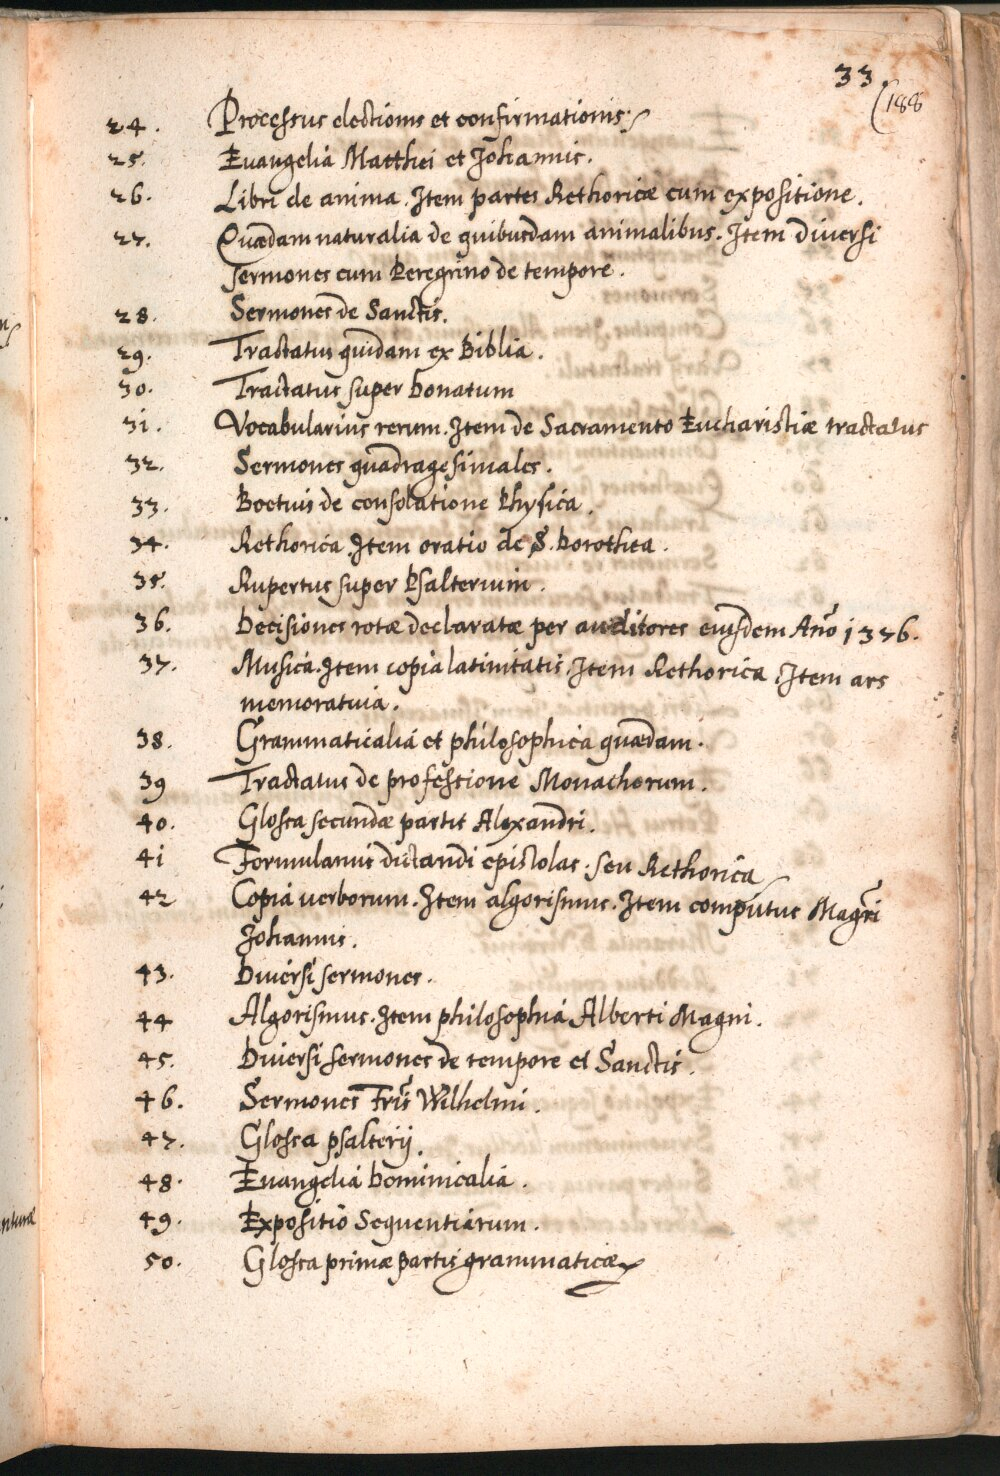 33
(188
24. Processus electionis et confirmationis.
25. Euangelia Matthei et Johannis.
26. Libri de anima. Item partes Rethoricæ cum expositione.
27. Quædam naturalia de quibusdam animalibus. Item diuersi
sermones cum Peregrino de tempore.
28. Sermones de Sanctis.
29. Tractatus quidam ex Biblia.
30. Tractatus super Donatum
31. Vocabularius rerum. Item de Sacramento Eucharistiæ tractatus
32. Sermones quadragesimales.
33. Boetius de consolatione Physica.
34. Rethorica. Item oratio de S. Dorothea.
35. Rupertus super Psalterium.
36. Decisiones rotæ declaratæ per auditores eiusdem Año 1376.
37. Musica. Item copia latinitatis. Item Rethorica. Item ars
memoratiua.
38. Grammaticalia et philosophica quædam.
39 Tractatus de professione Monachorum.
40. Glossa secundæ partis Alexandri.
41 Formularius dictandi epistolas. seu Rethorica
42 Copia uerborum. Item algorismus. Item computus Magrĩ
Johannis.
43. Diuersi sermones.
44 Algorismus. Item philosophia Alberti Magni.
45. Diuersi sermones de tempore et Sanctis.
46. Sermones Fr̃is Wilhelmi.
47. Glossa psalterij.
48. Euangelia Dominicalia.
49. Expositio Sequentiarum.
50. Glossa primæ partis grammaticæ